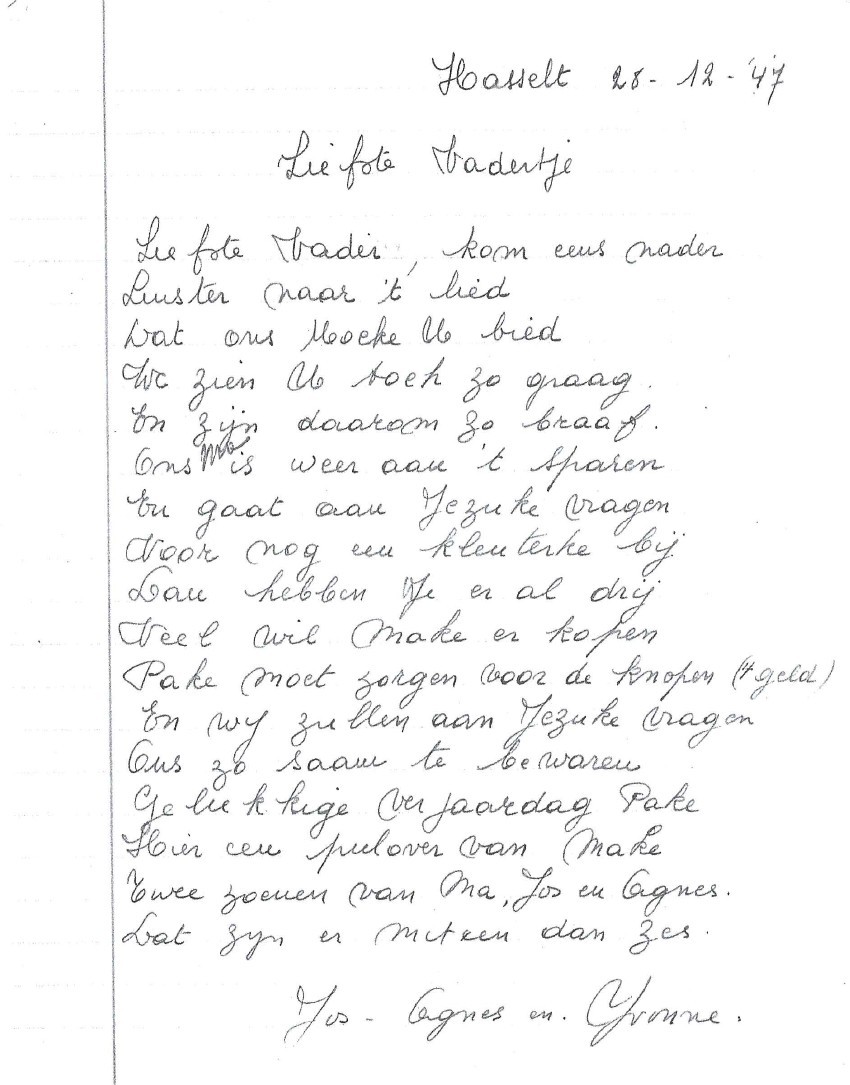 Hasselt 28-12-'47
Liefste Vadertje
Liefste Vader, kom eens nader
Luister naar 't lied
Dat ons Moeke U bied
We zien U toch zo graag.
En zijn daarom zo braaf.
Ons Ma is weer aan 't sparen
En gaat aan Jezuke vragen
Voor nog een kleuterke bij
Dan hebben We er al drij
Veel wil Make er kopen
Pake moet zorgen voor de knopen ('t geld)
En wij zullen aan Jezuke vragen
Ons zo saam te bewaren
Gelukkige verjaardag Pake
Hier een pulover van Make
Twee zoenen van Ma, Jos en Agnes.
Dat zyn er meteen dan zes.
Jos - Agnes en. Yvonne.